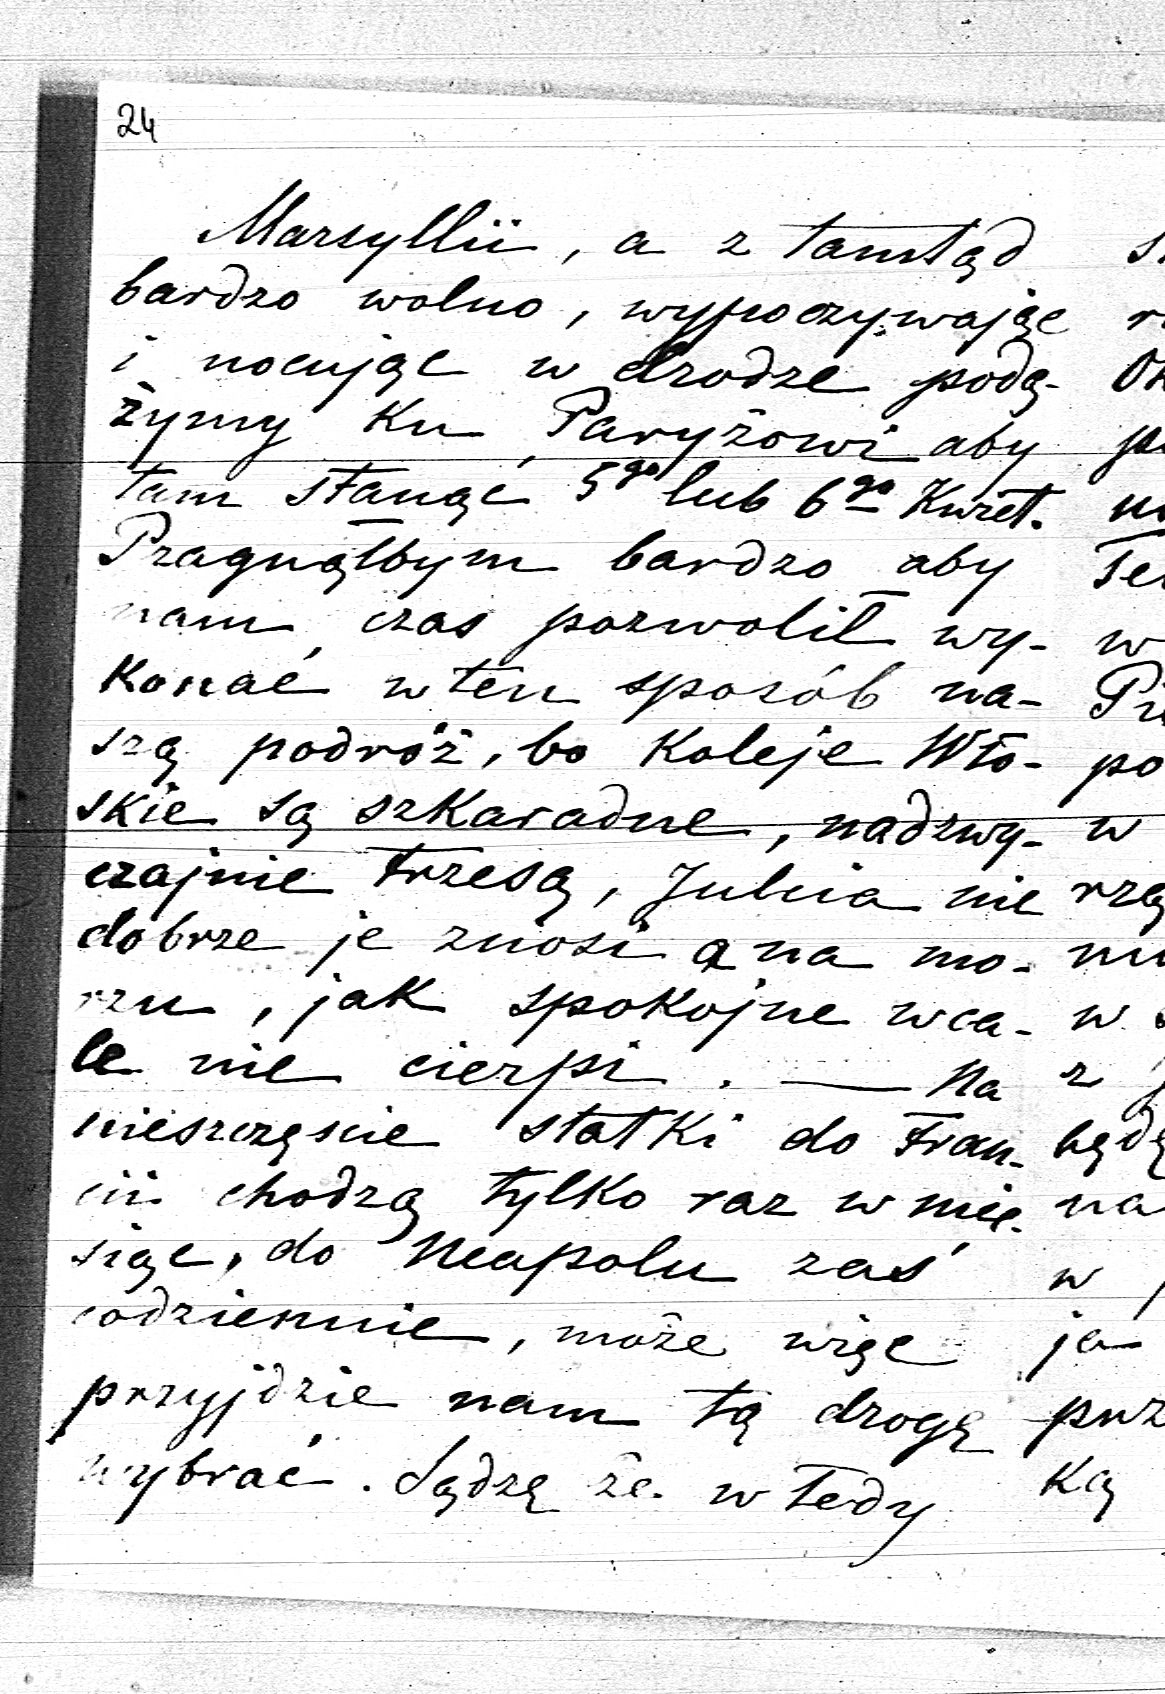 24
Marsyllii, a z tamtąd
bardzo wolno, wypoczywając
i nocując w drodze podą-
żymy ku Paryżowi aby
tam stanąć 5go lub 6go Kwiet.
Pragnąłbym bardzo aby
nam czas pozwolił wy-
konać w ten sposób na-
szą podróż, bo Koleje Wło-
skie są szkaradne, nadzwy-
czajnie trzęsą, Julcia nie
dobrze je znosi a na mo-
rzu, jak spokojne wca-
le nie cierpi. — Na
nieszczęscie statki do Fran-
cii chodzą tylko raz w mie-
siąc, do Neapolu zaś
codziennie, może więc
przyjdzie nam tą drogę
wybrać. Sądzę że w tedy